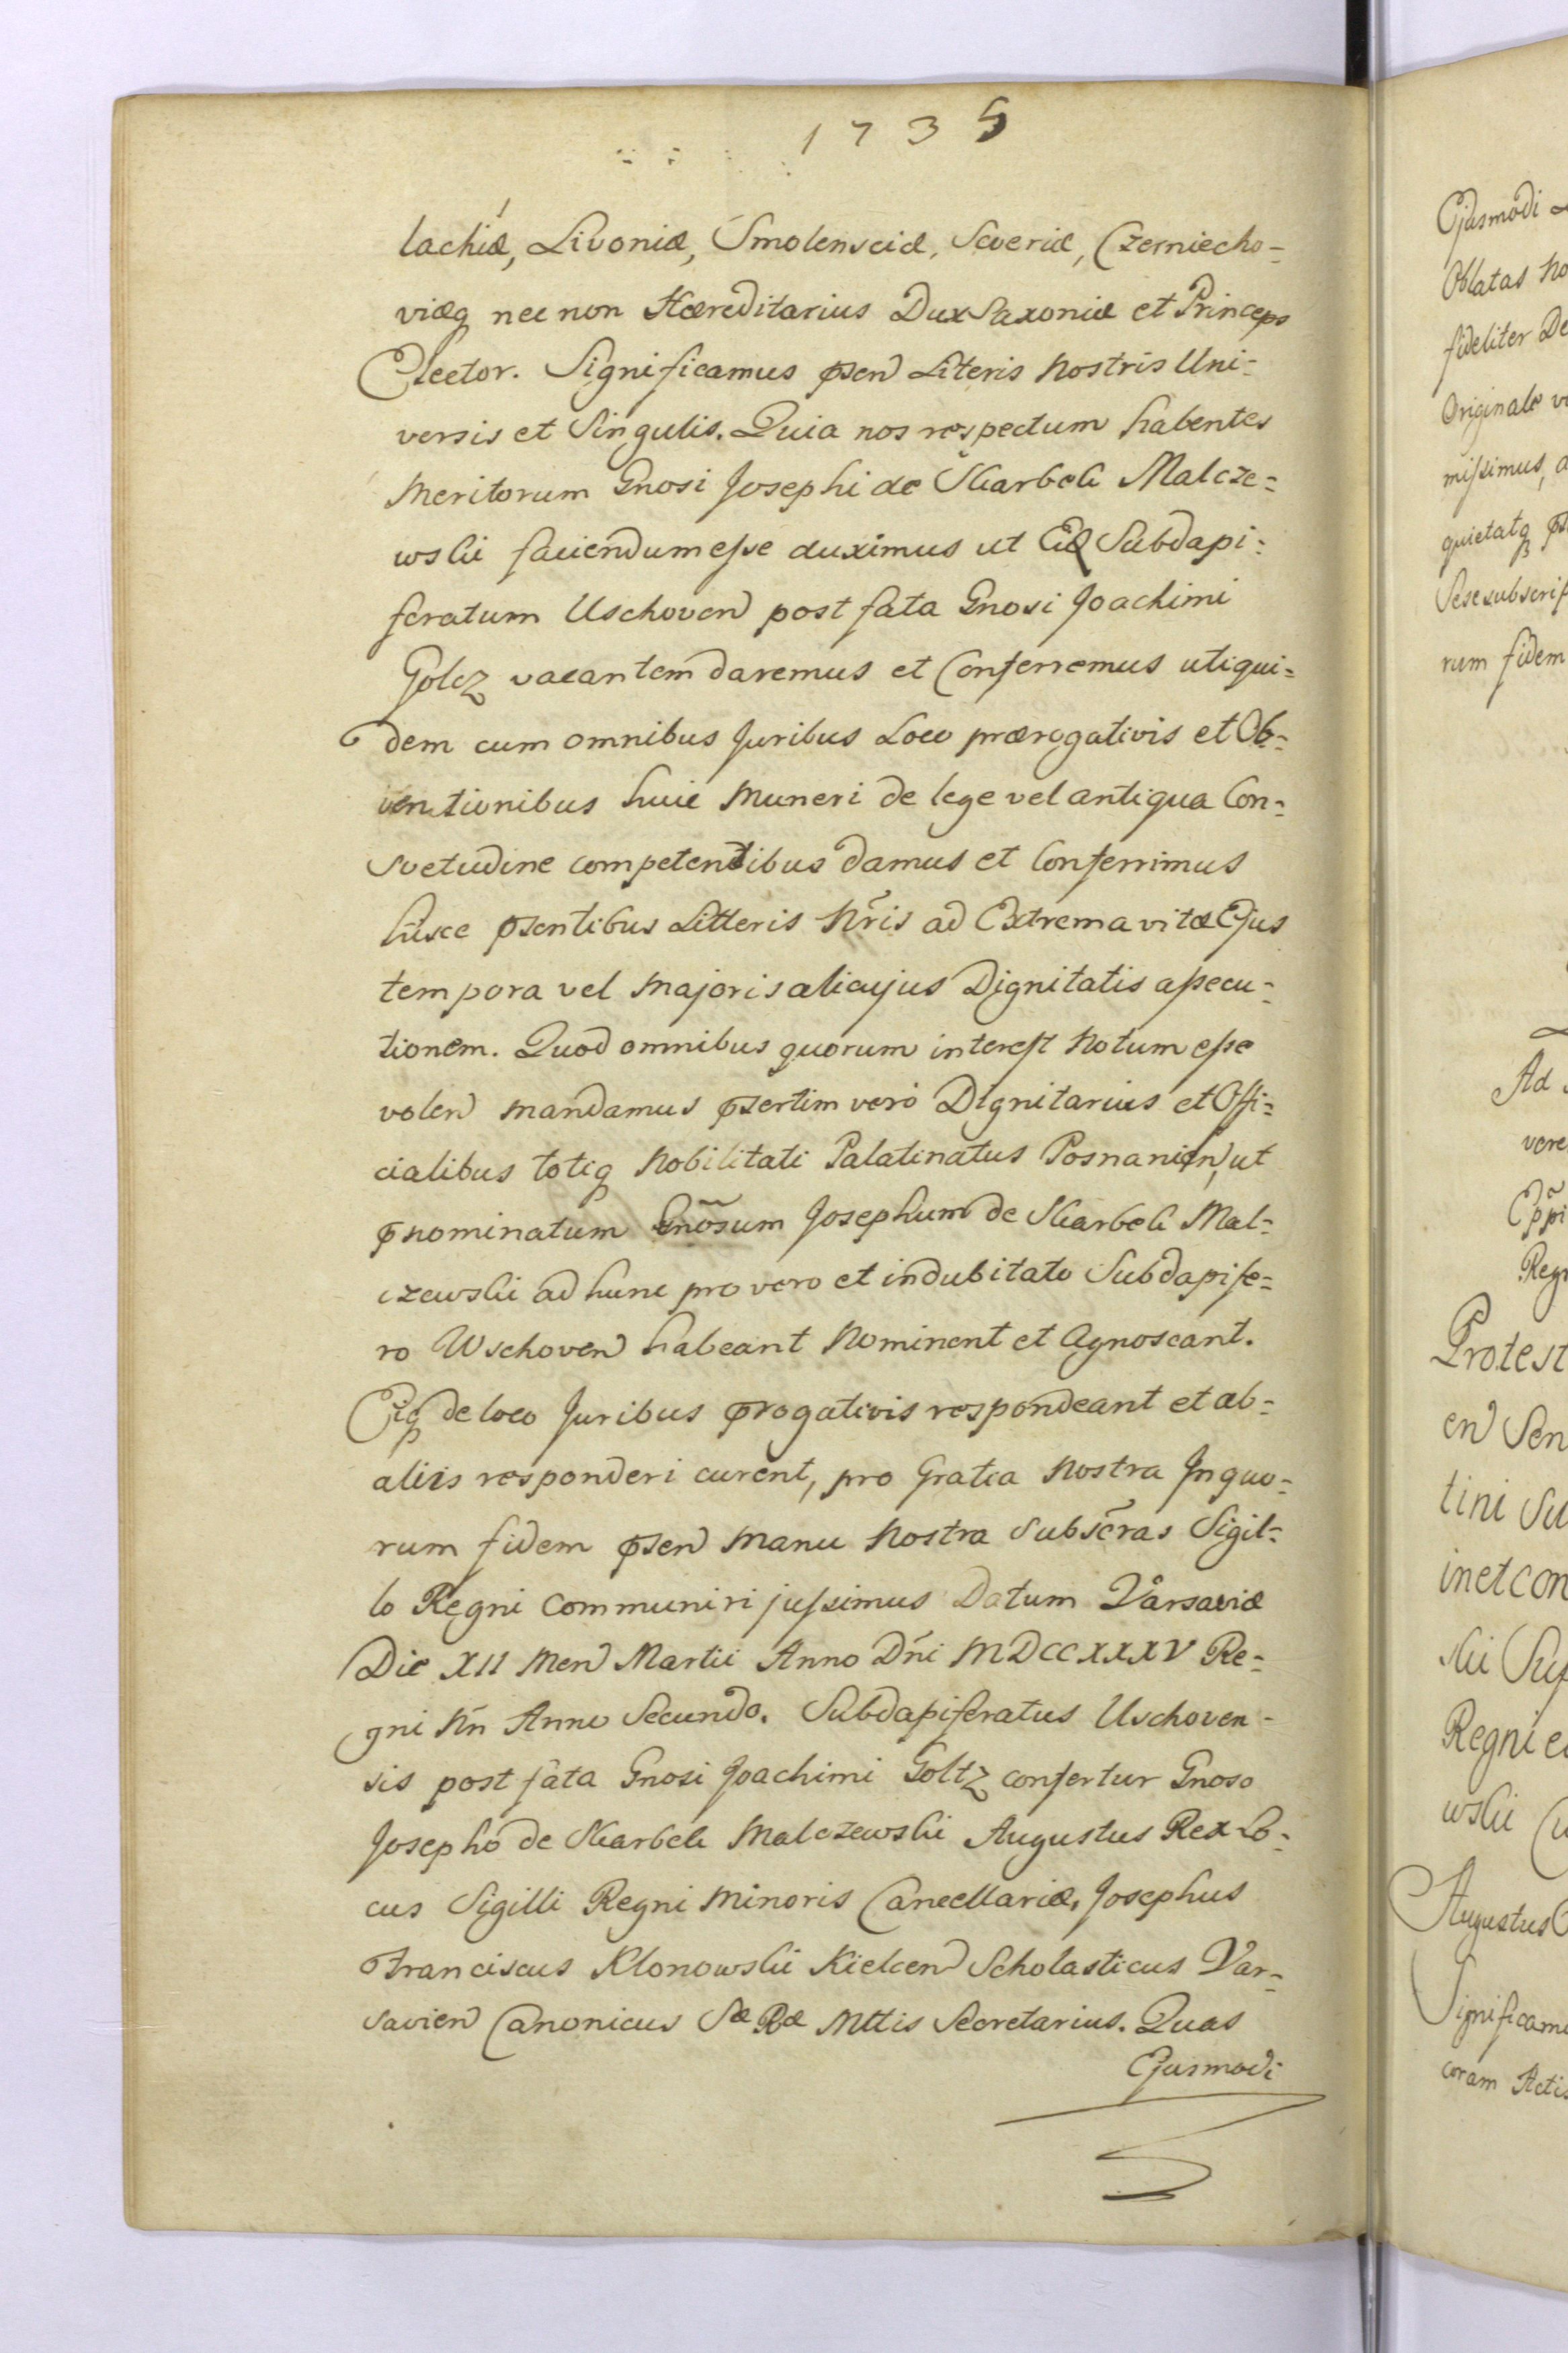 1735
lachiæ, Livoniæ, Smolensciæ, Severiæ, Czerniecho=
viæq nec non Hæreditarius Dux Saxoniæ et Princeps
Elector. Significamus psen Literis Nostris Uni=
versis et Singulis. Quia nos respectum habentes
Meritorum Gnosi Josephi de Skarbek Malcze=
wski faciendum esse duximus ut Eid Subdapi=
feratum Uschoven post fata Gnosi Joachimi
Golcz vacantem daremus et Conferremus utiqui=
dem cum omnibus Juribus Loco prærogativis et Ob=
ventionibus huic Muneri de lege vel antiqua Con=
svetudine competentibus damus et Conferrimus
hisce psentibus Litteris Nr̃is ad Extrema vitæ Ejus
tempora vel Majoris alicujus Dignitatis assecu=
tionem. Quod omnibus quorum interest Notum esse
volen mandamus psertim vero Dignitarius et Offi=
cialibus totiq Nobilitati Palatinatus Posnanien, ut
pnominatum Gnõsum Josephum de Skarbek Mal=
czewski ad hunc pro vero et indubitato Subdapife=
ro Wschoven habeant Nominent et Agnoscant.
Eiq de loco Juribus progativis respondeant et ab=
aliis responderi curent, pro Gratia Nostra In quo=
rum fidem psen Manu Nostra Subsc̃ras Sigil=
lo Regni Communiri jussimus Datum Varsaviæ
Die XII Men Martii Anno Dñi MDCCXXXV Re=
gni Nñ Anno Secundo. Subdapiferatus Uschoven=
sis post fata Gnosi Joachimi Goltz confertur Gnoso
Josepho de Skarbek Malczewski Augustus Rex Lo=
cus Sigilli Regni Minoris Cancellariæ, Josephus
Franciscus Klonowski Kielcen Scholasticus Var=
savien Canonicus Sæ Ræ Mttis Secretarius. Quas
Ejusmodi
Ejusmodi
Oblatas
fideliter
Originale
missimus,
quietatq
Sese subscri
rum fidem
Ad
Regn
Protest
en Sen
tini Su
inet con
ski Sup
Regni
wski
Augustus
Significam
coram Actis